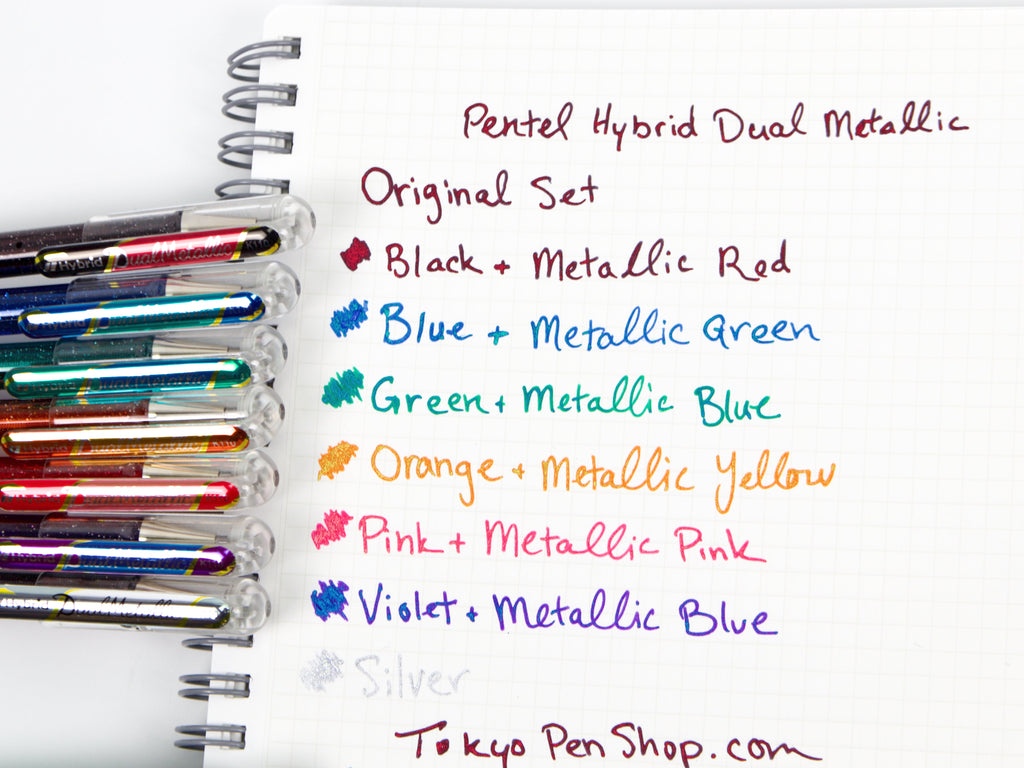 Pentel Hybrid Dual Metallic
Original Set
Black + Metallic Red
Blue + Metallic Green
Green + Metallic Blue
Orange + Metallic Yellow
Pink + Metallic Pink
Violet + Metallic Blue
Silver
TokyoPenShop.com
Hybrid DualMetallic
DualMetallic
DualMetallic